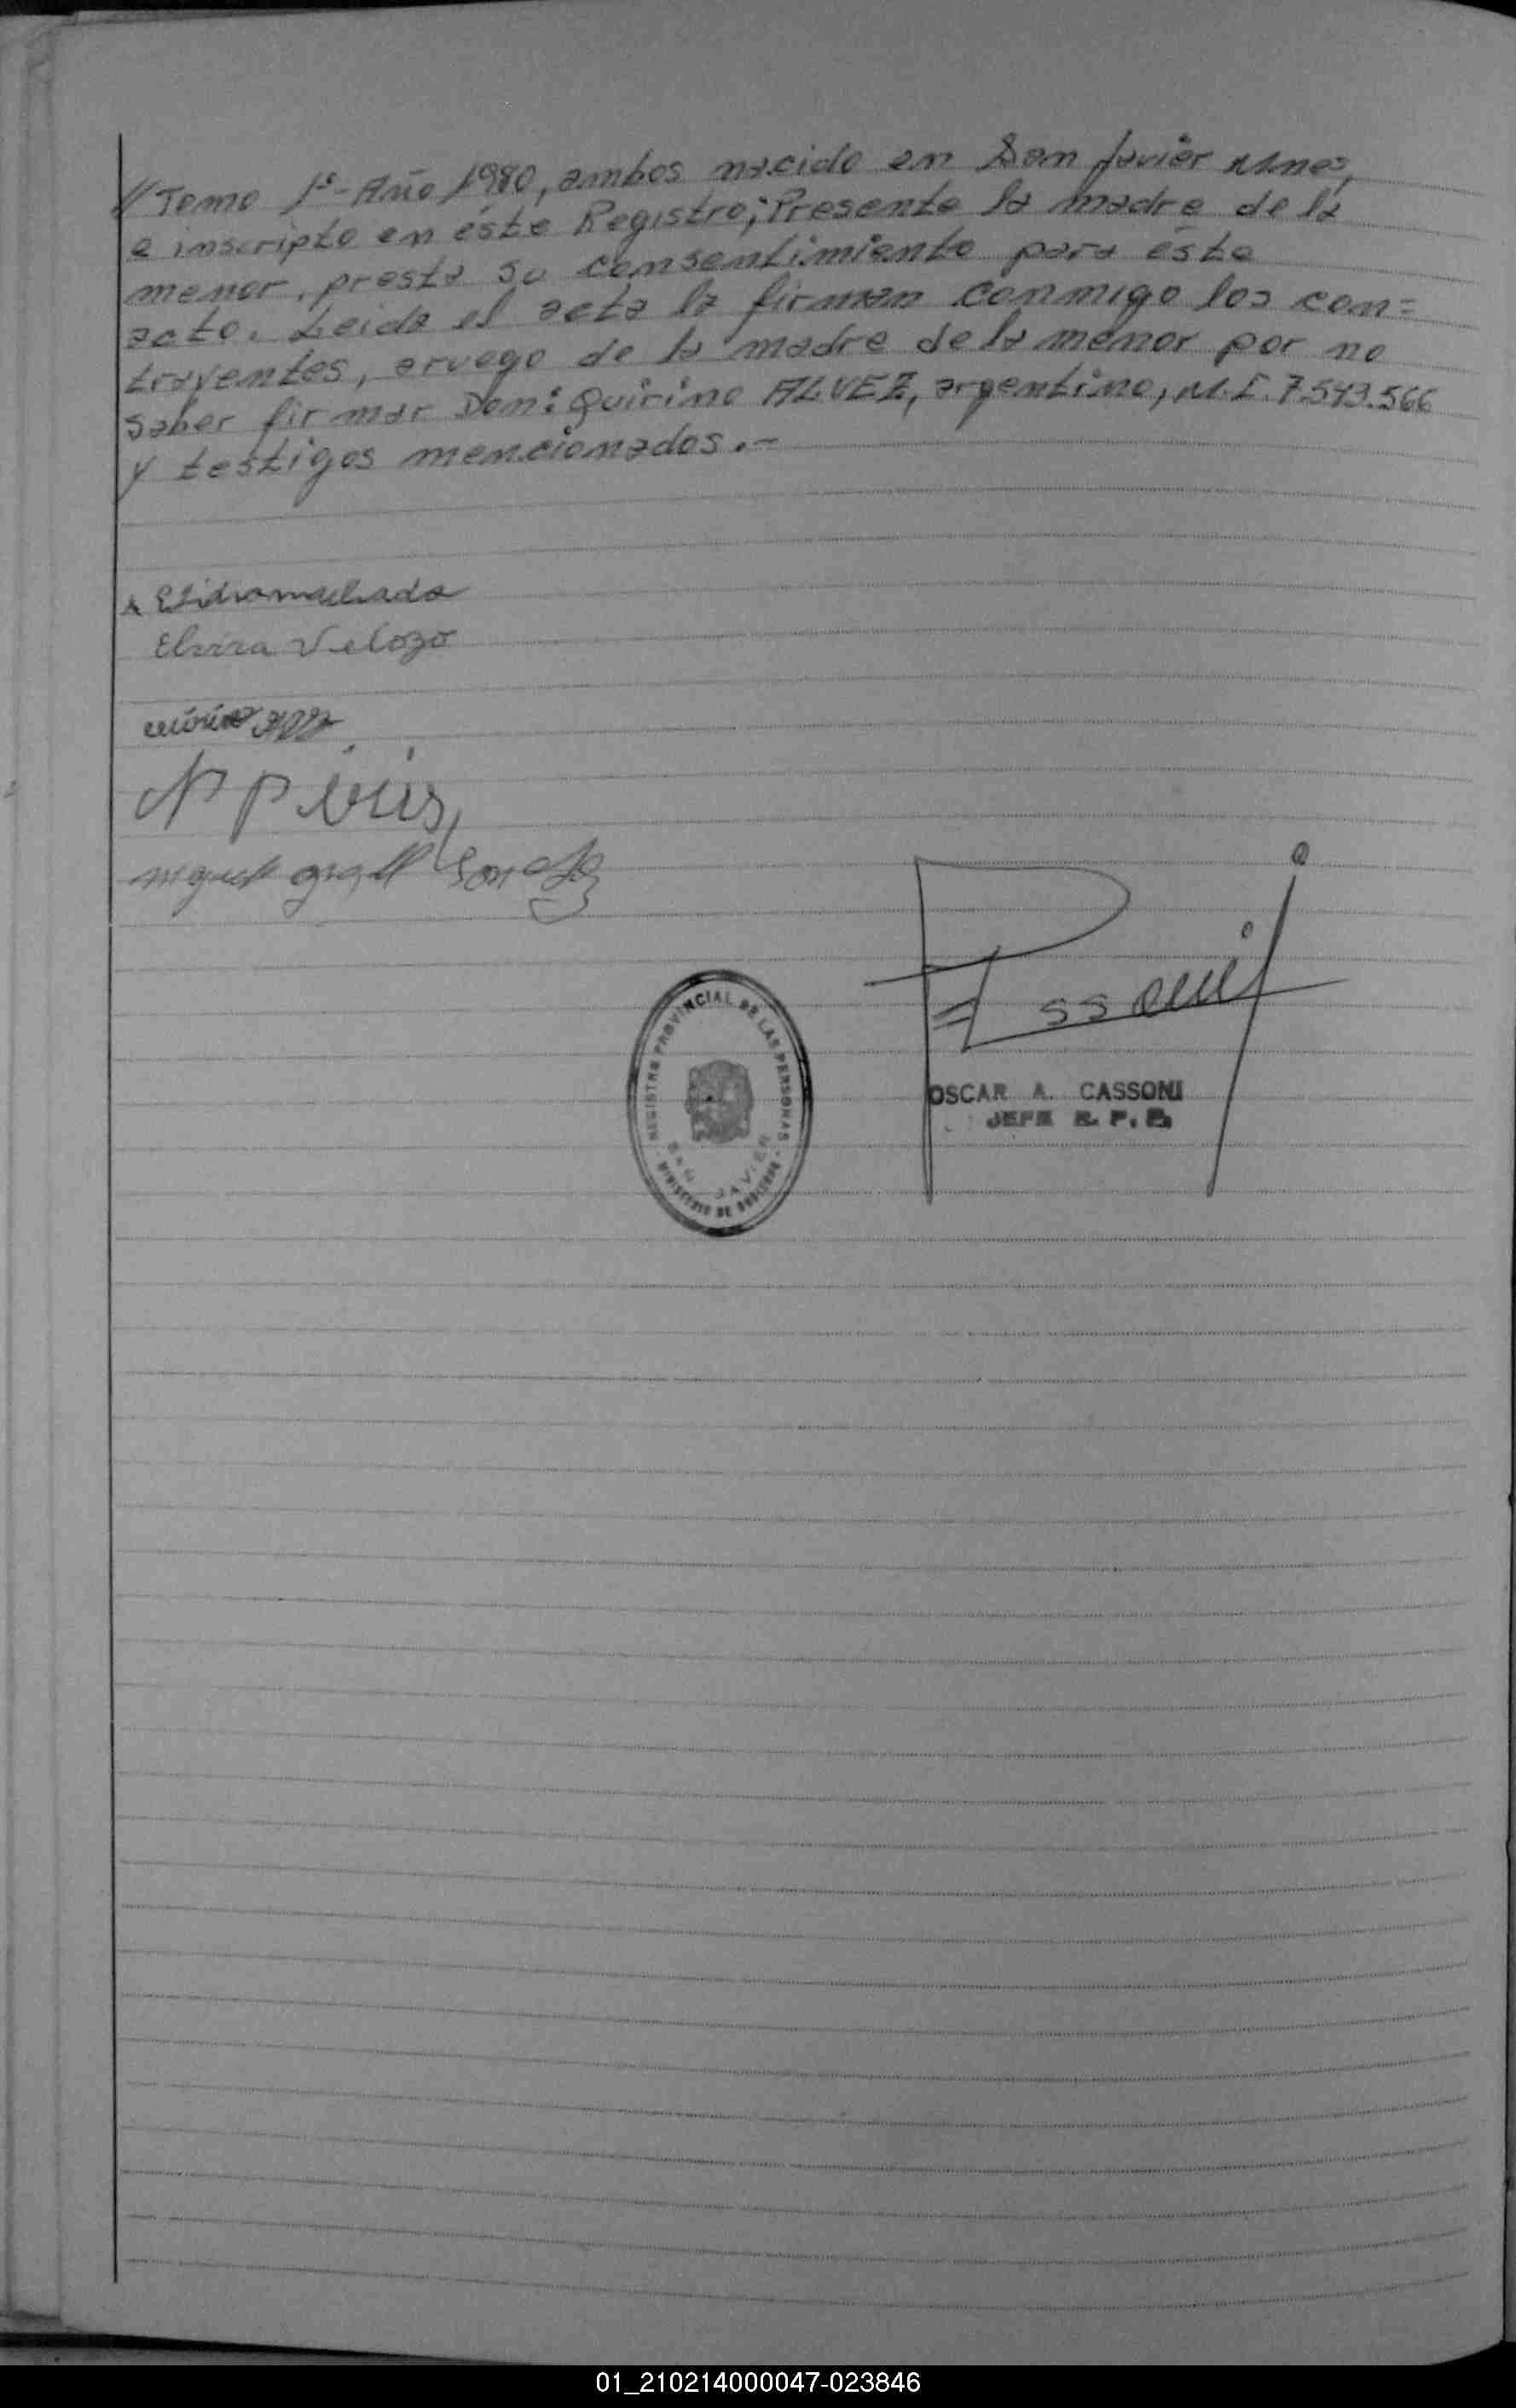 // Tomo 1º - Año 1980, ambos nacido en San Javier Mnes,
e inscripto en éste Registro; Presente la madre de la
menor, presta su consentimiento para éste
acto. Leida el acta la firman conmigo los con=
trayentes, aruego de la madre de la menor por no
saber firmar Don: Quirino ALVEZ, argentino, M.I. 7.543.566
y testigos mencionados.-
Elvira Velozo
REGISTRO PROVINCIAL DE LAS PERSONAS
SAN JAVIER
MINISTERIO DE GOBIERNO
OSCAR A. CASSONI
JEFE R. P. P.
01_210214000047-023846